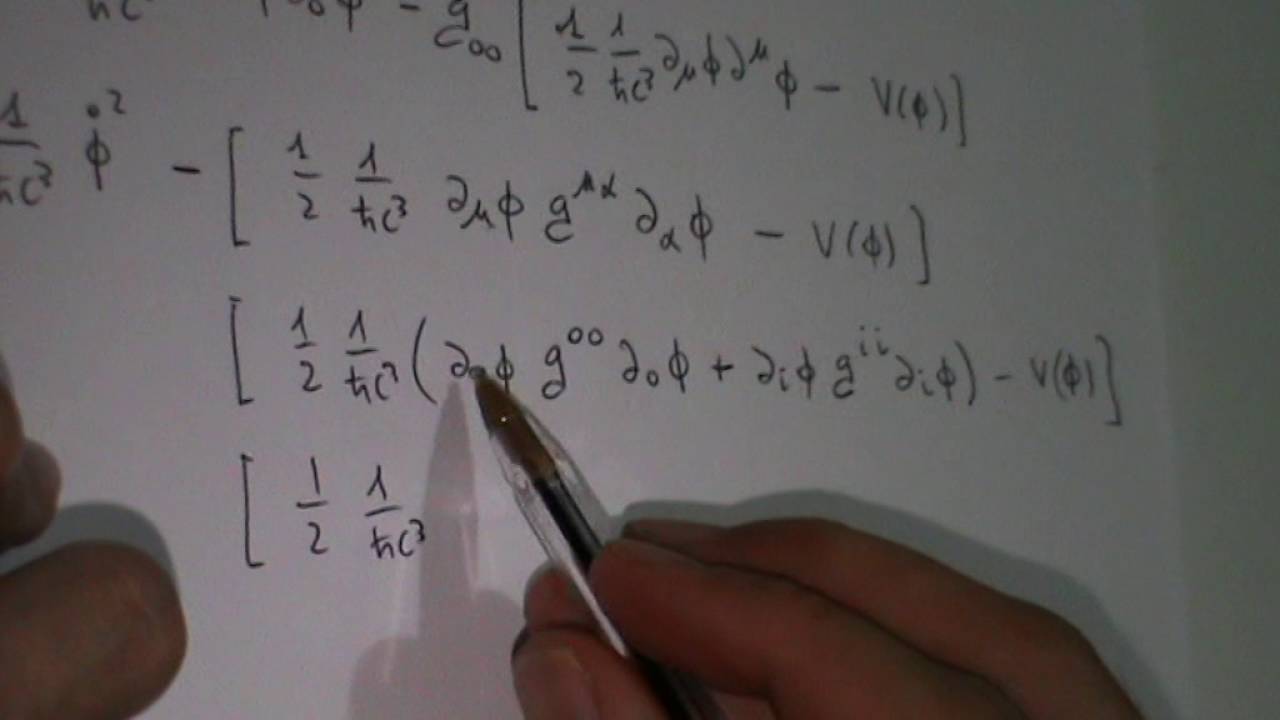 ħc φ − g₀₀ [ 1/2 1/ħc³ ∂_μφ∂^μφ − V(φ)]
1/ħc³ φ̇² − [ 1/2 1/ħc³ ∂_μφ g^{μα} ∂_αφ − V(φ)]
[ 1/2 1/ħc³ (∂₀φ g⁰⁰ ∂₀φ + ∂ᵢφ gⁱⁱ ∂ᵢφ) − V(φ)]
[ 1/2 1/ħc³